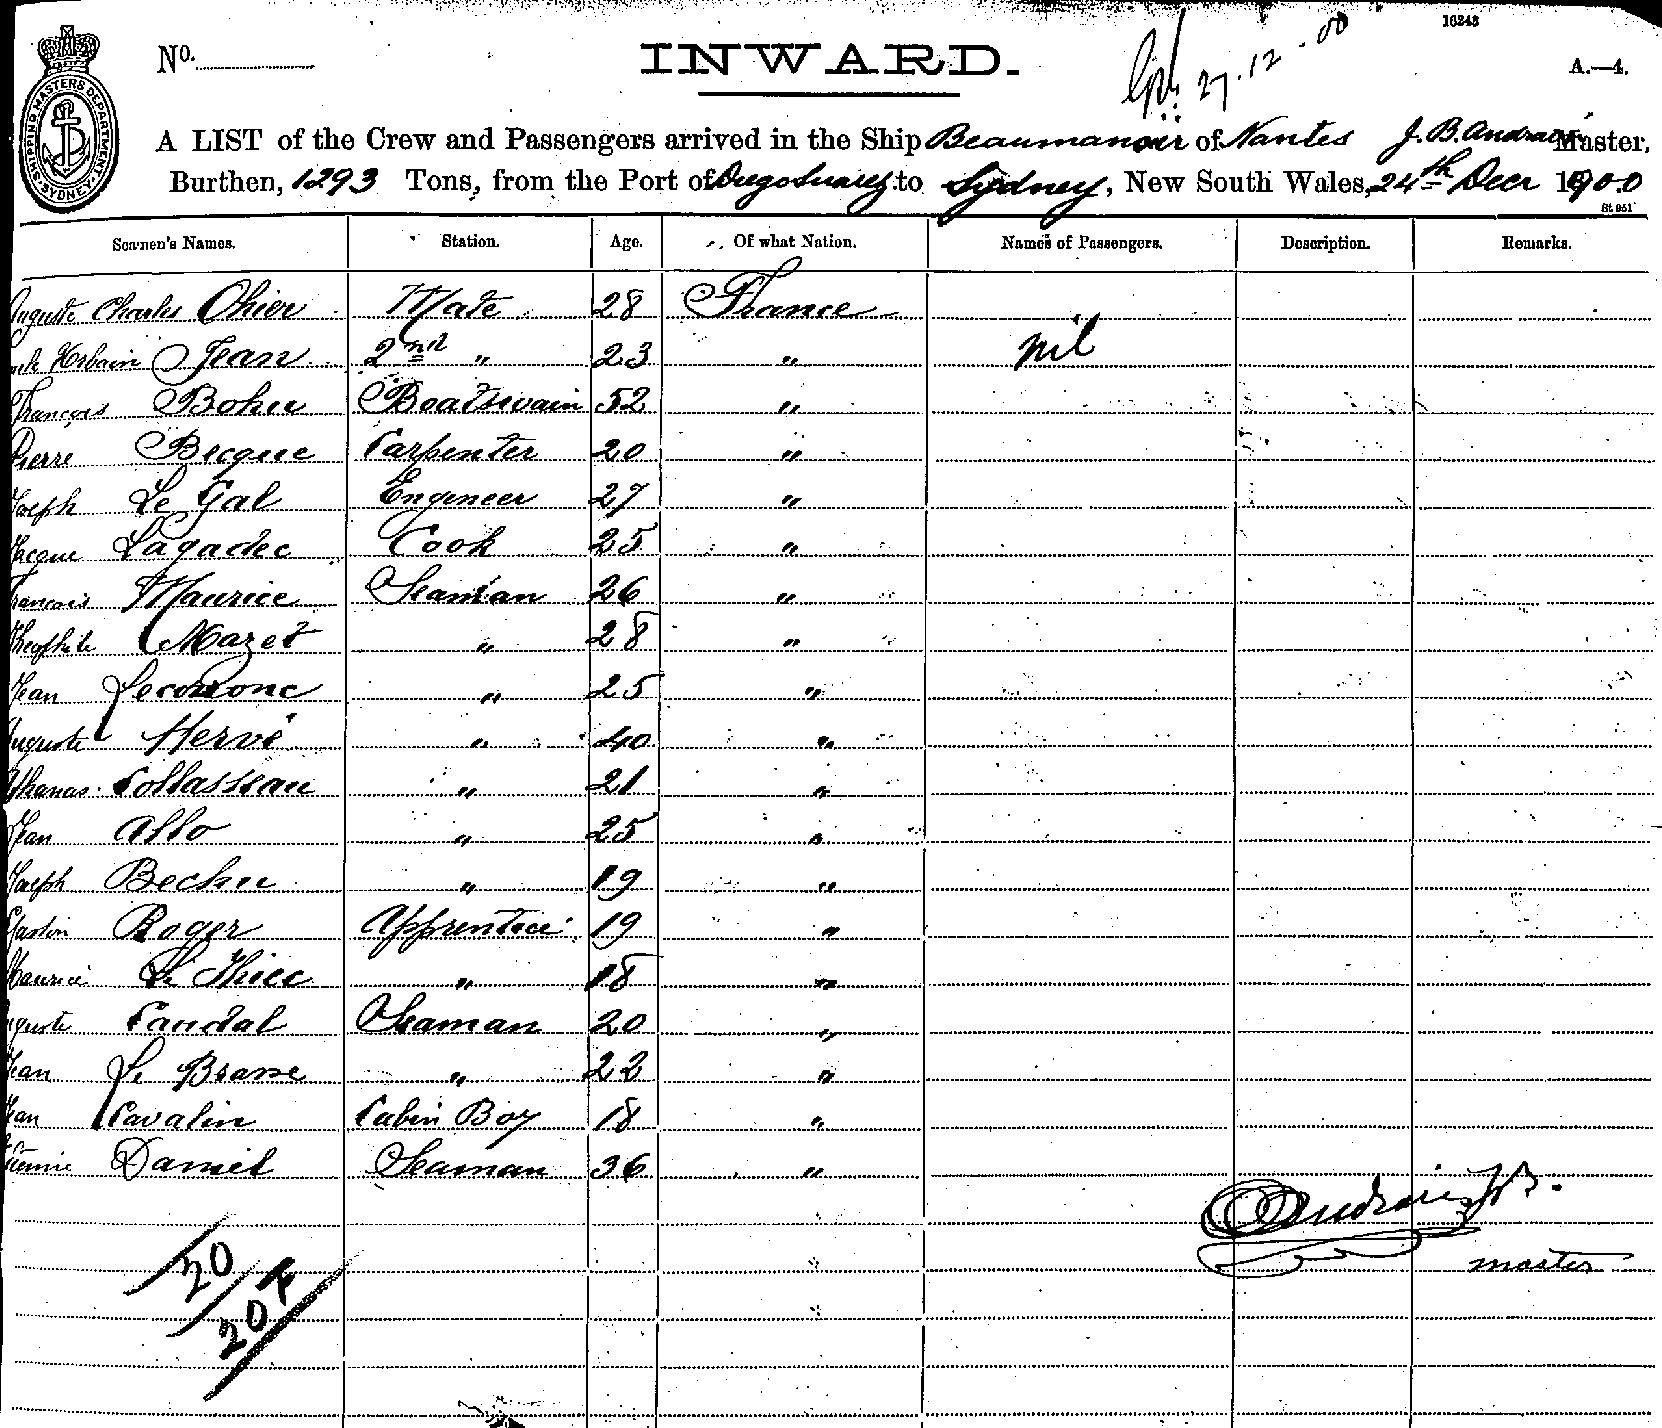 16243
No. INWARD. 27.12.00 A.—4.
SHIPPING MASTERS DEPARTMENT. SYDNEY.
A LIST of the Crew and Passengers arrived in the Ship Beaumanoir of Nantes J. B. Master,
Burthen, 1293 Tons, from the Port of Diego Suarez to Sydney, New South Wales, 24th Decr 1900
St 951
Seamen's Names. Station. Age. Of what Nation. Names of Passengers. Description. Remarks.
Auguste Charles Ohier Mate 28 France
Urbain Jean 2nd " 23 " nil
François Bohu Boatswain 52 "
Pierre Becque Carpenter 20 "
Joseph Le Gal Engineer 27 "
Jacque Lagadec Cook 25 "
François Maurice Seaman 26 "
Theophile Mazet " 28 "
Jean " 25 "
Auguste Hervé " 40 "
Athanas. Collasseau " 21 "
Jean Allo " 25 "
Joseph Bechu " 19 "
Gaston Roger Apprentice 19 "
Maurice Le Thiec " 18 "
Auguste Caudal Seaman 20 "
Jean Le " 22 "
Jean Cavalin Cabin Boy 18 "
Daniel Seaman 36 "
J B.
master
20
20